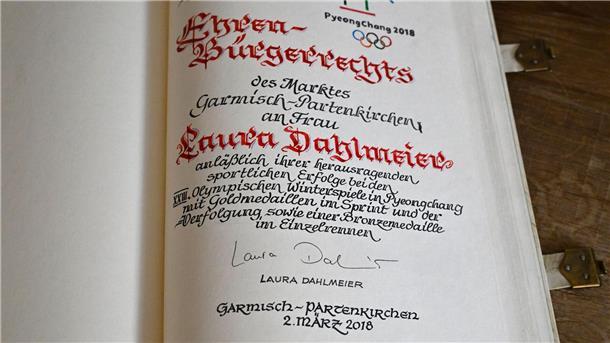 PyeongChang 2018
Ehren-
Bürgerrechts
des Marktes
Garmisch-Partenkirchen
an Frau
Laura Dahlmeier
anläßlich ihrer herausragenden
sportlichen Erfolge bei den
XXIII. Olympischen Winterspiele in Pyeongchang
mit Goldmedaillen im Sprint und der
Verfolgung, sowie einer Bronzemedaille
im Einzelrennen
Laura Dahlmeier
LAURA DAHLMEIER
GARMISCH-PARTENKIRCHEN
2. MÄRZ 2018